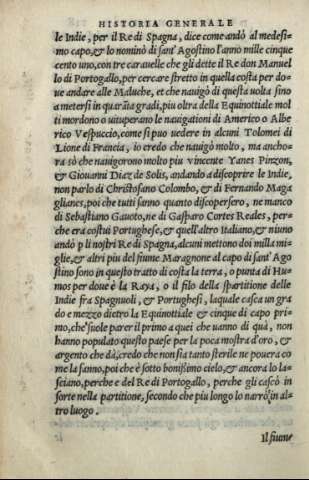 HISTORIA GENERALE
le Indie, per il Re di Spagna, dice come andò al medesi-
mo capo, & lo nominò di sant'Agostino l'anno mille cinque
cento uno, con tre caravelle che gli dette il Re don Manuel
lo di Portogallo, per cercare stretto in quella costa per do-
ue andare alle Maluche, et che nauigò di questa uolta sino
a metersi in quarāta gradi, piu oltra della Equinottiale mol
ti mordono o uituperano le nauigationi di Americo o Albe
rico Vespuccio, come si puo uedere in alcuni Tolomei di
Lione di Francia, io credo che nauigò molto, ma ancho-
ra sò che nauigorono molto piu vincente Yanes Pinzon,
& Giouanni Diaz de Solis, andando a discoprire le Indie,
non parlo di Christofano Colombo, & di Fernando Maga
glianes, poi che tutti sanno quanto discopersero, ne manco
di Sebastiano Gauoto, ne di Gasparo Cortes Reales, per-
che era costui Portughese, & quell'altro Italiano, & niuno
andò p li nostri Re di Spagna, alcuni mettono doi milla mi-
glie, & altri piu del fiume Maragnone al capo di sant'Ago
stino sono in questo tratto di costa la terra, o punta di Hu-
mos per doue è la Raya, o il filo della spartitione delle
Indie fra Spagnuoli, & Portughesi, laquale casca un gra
do e mezzo dietro la Equinottiale & cinque di capo pri-
mo, che suole parer il primo a quei che uanno di quà, non
hanno populato questo paese per la poca mostra d'oro, &
argento che dà, credo che non sia tanto sterile ne pouera co
me la fanno, poi che è sotto bonissimo cielo, & ancora lo la-
sciano, perche e del Re di Portogallo, perche gli cascò in
sorte nella partitione, secondo che piu longo lo narrò in al-
tro luogo.
Il fiume